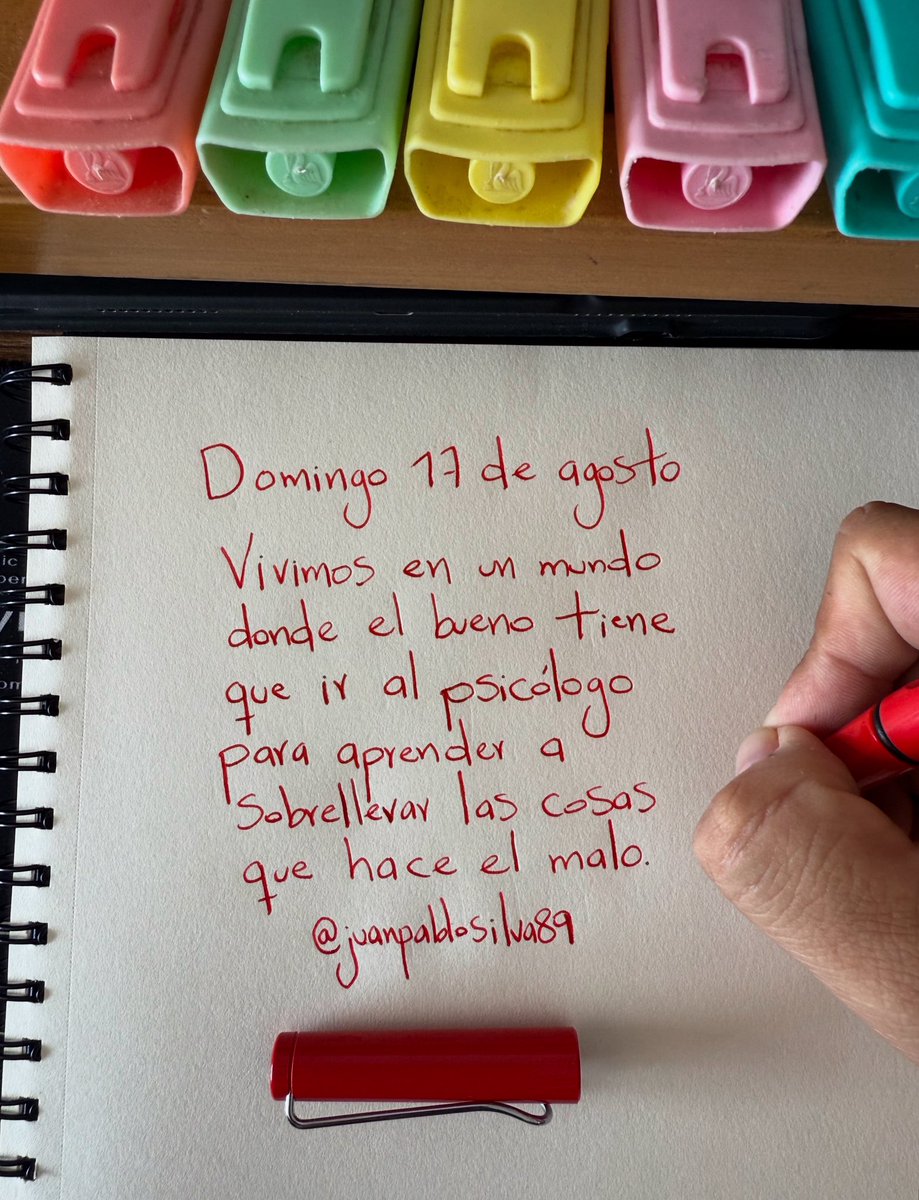 Domingo 17 de agosto
Vivimos en un mundo
donde el bueno tiene
que ir al psicólogo
para aprender a
Sobrellevar las cosas
que hace el malo.
@juanpablosilva89